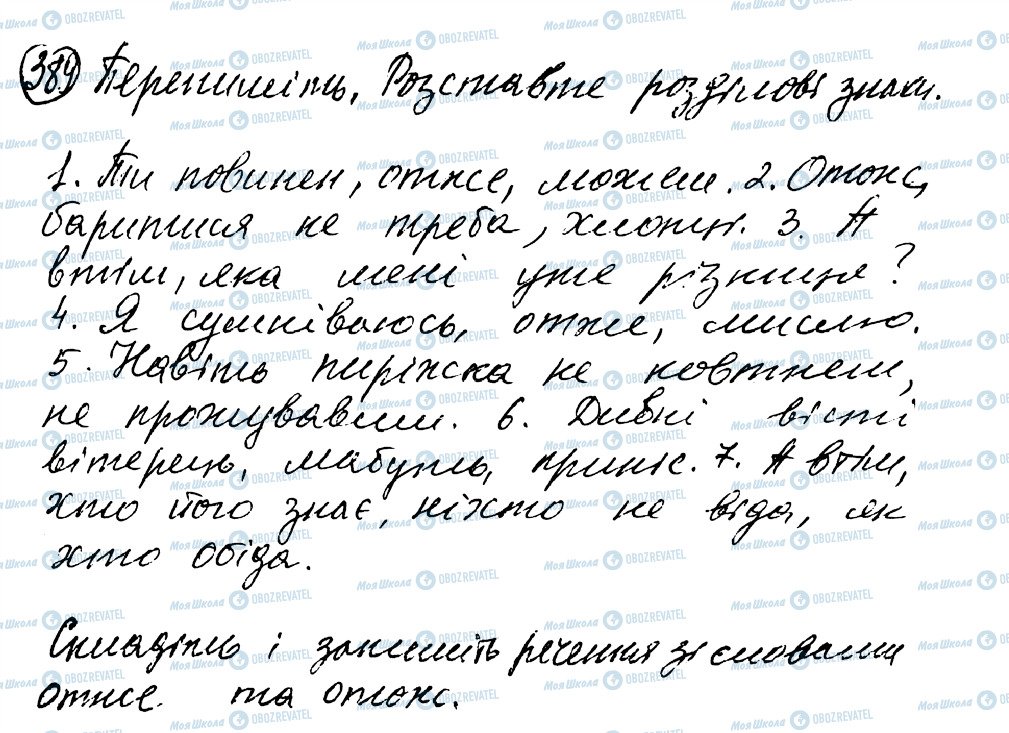 389 Перепишіть. Розставте розділові знаки.
1. Ти повинен, отже, можеш. 2. Отож,
баритися не треба, хлопці. 3. А
втім, яка мені уже різниця?
4. Я сумніваюсь, отже, мислю.
5. Навіть пиріжка не ковтнеш,
не прожувавши. 6. Дивні вісті
вітерець, мабуть, приніс. 7. А втім,
хто його знає, ніхто не віда, як
хто обіда.
Складіть і запишіть речення зі словами
отже та отож.